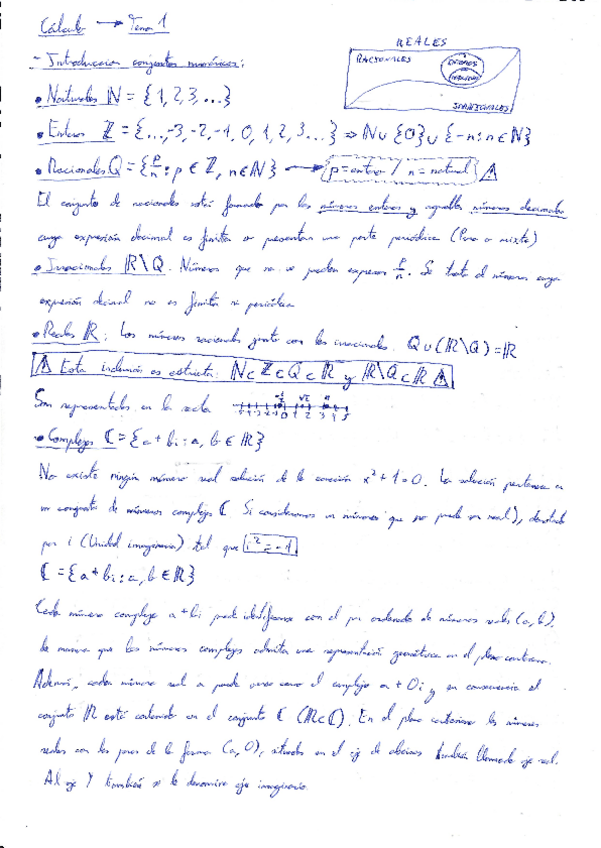 Cálculo → Tema 1
REALES
RACIONALES
ENTEROS
IRRACIONALES
- Introducción conjuntos numéricos:
• Naturales ℕ = {1, 2, 3, ...}
• Enteros ℤ = {..., -3, -2, -1, 0, 1, 2, 3...} ⇒ ℕ∪{0}∪{-n: n∈ℕ}
• Racionales Q = {p/n : p∈ℤ, n∈ℕ} → p = entero / n = natural ⚠
El conjunto de racionales está formado por los números enteros y aquellos números decimales
cuya expresión decimal es finita o presentan una parte periódica (Pura o mixta)
• Irracionales ℝ\Q. Números que no se pueden expresar p/n. Se trata de números cuya
expresión decimal no es finita ni periódica
• Reales ℝ: Los números racionales junto con los irracionales. Q∪(ℝ\Q)=ℝ
⚠ Esta inclusión es estricta: ℕ⊂ℤ⊂Q⊂ℝ y ℝ\Q⊂ℝ ⚠
Son representados en la recta
• Complejos ℂ = {a + bi : a, b ∈ ℝ}
No existe ningún número real solución de la ecuación x² + 1 = 0. La solución pertenece a
un conjunto de números complejos ℂ. Si consideramos un número (que no puede ser real), denotado
por i (Unidad imaginaria) tal que i² = -1
ℂ = {a + bi : a, b ∈ ℝ}
Cada número complejo a + bi puede identificarse con el par ordenado de números reales (a, b),
de manera que los números complejos admiten una representación geométrica en el plano cartesiano.
Además, cada número real a puede verse como el complejo a + 0i y en consecuencia el
conjunto ℝ está contenido en el conjunto ℂ (ℝ⊂ℂ). En el plano cartesiano los números
reales son los pares de la forma (a, 0), situados en el eje de abcisas también llamado eje real.
Al eje Y también se le denomina eje imaginario.